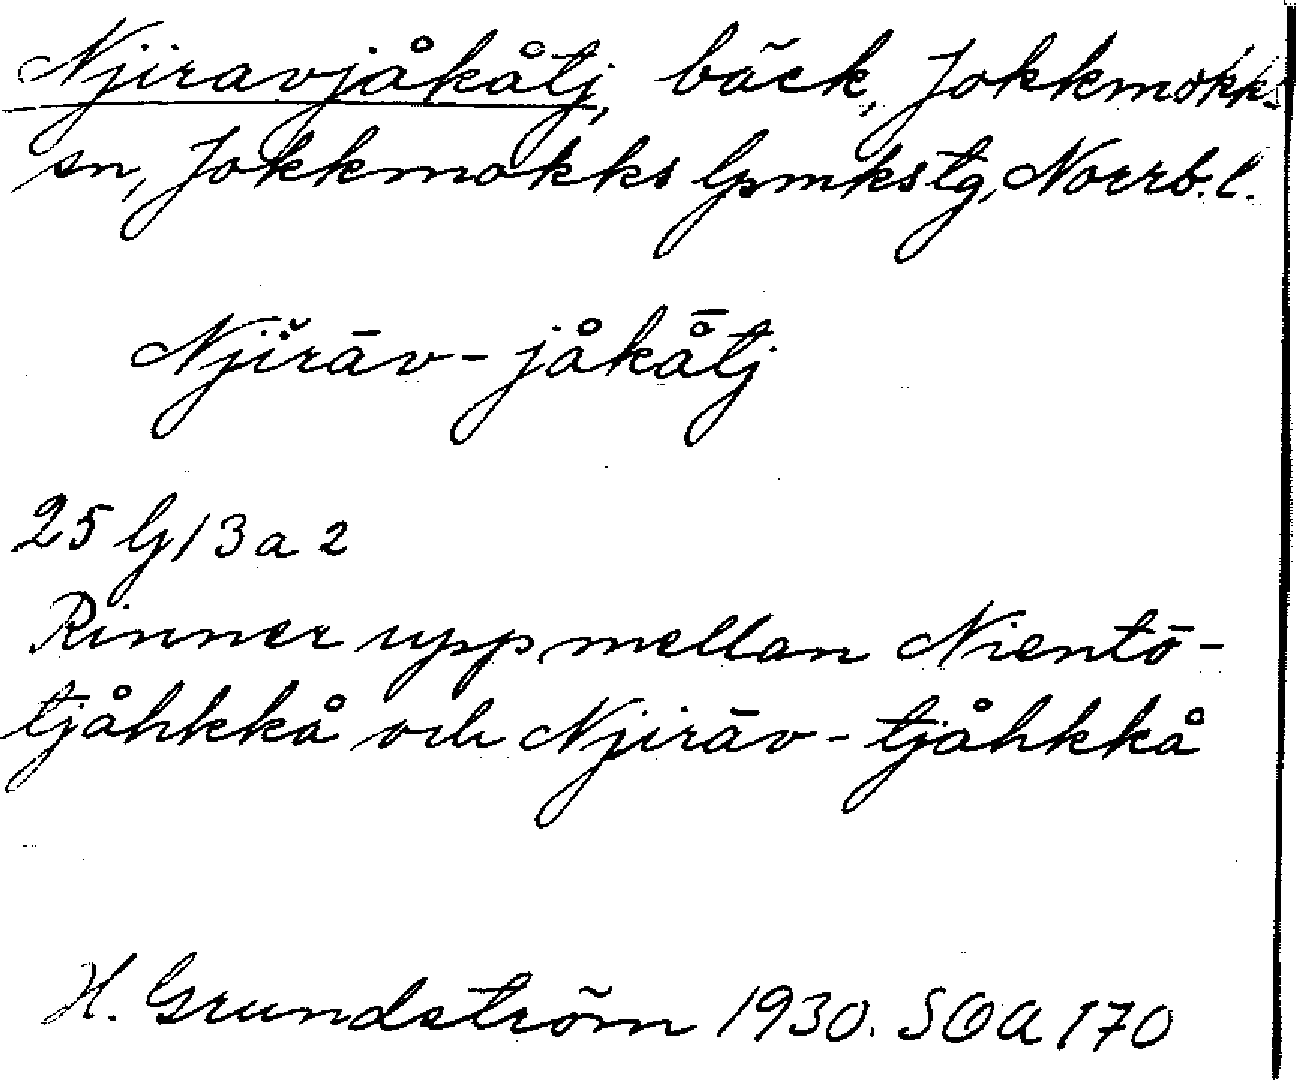 Njiravjåkåtj, bäck, Jokkmokks
sn, Jokkmokks lpmkstg, Norrb.l.
Njĭrāv-jåkå̄tj
25 G/3a2
Rinner upp mellan Nientō-
tjåhkkå och Njirāv-tjåhkkå
H. Grundström 1930. SOA 170